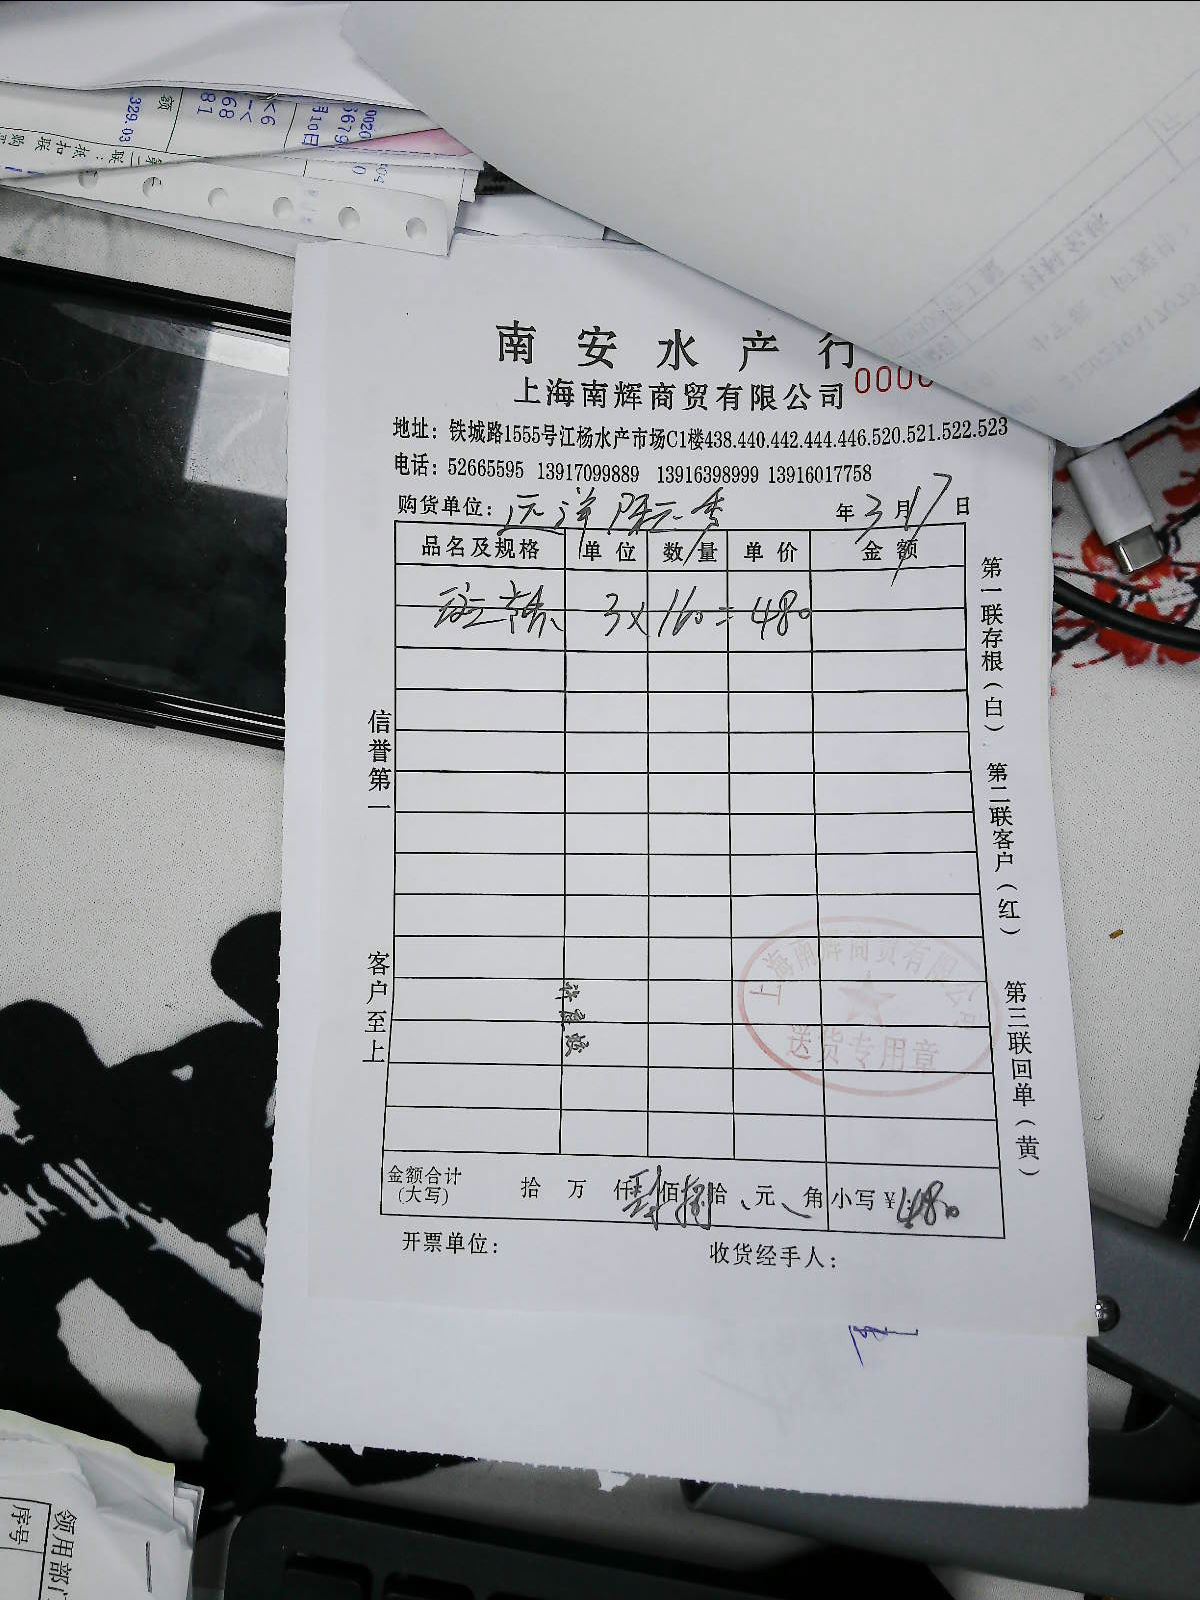 南安水产行
上海南辉商贸有限公司
0000
地址：铁城路1555号江杨水产市场C1楼438.440.442.444.446.520.521.522.523
电话：52665595 13917099889 13916398999 13916017758
购货单位：远洋 年3月17日
品名及规格 单位 数量 单价 金额
3×160=480
信誉第一
客户至上
第一联存根（白）
第二联客户（红）
第三联回单（黄）
上海南辉商贸有限公司
送货专用章
金额合计（大写） 拾 万 仟肆佰捌拾 元 角 小写￥480
开票单位： 收货经手人：
329.03
额
81
68
月10日
领用部门
序号